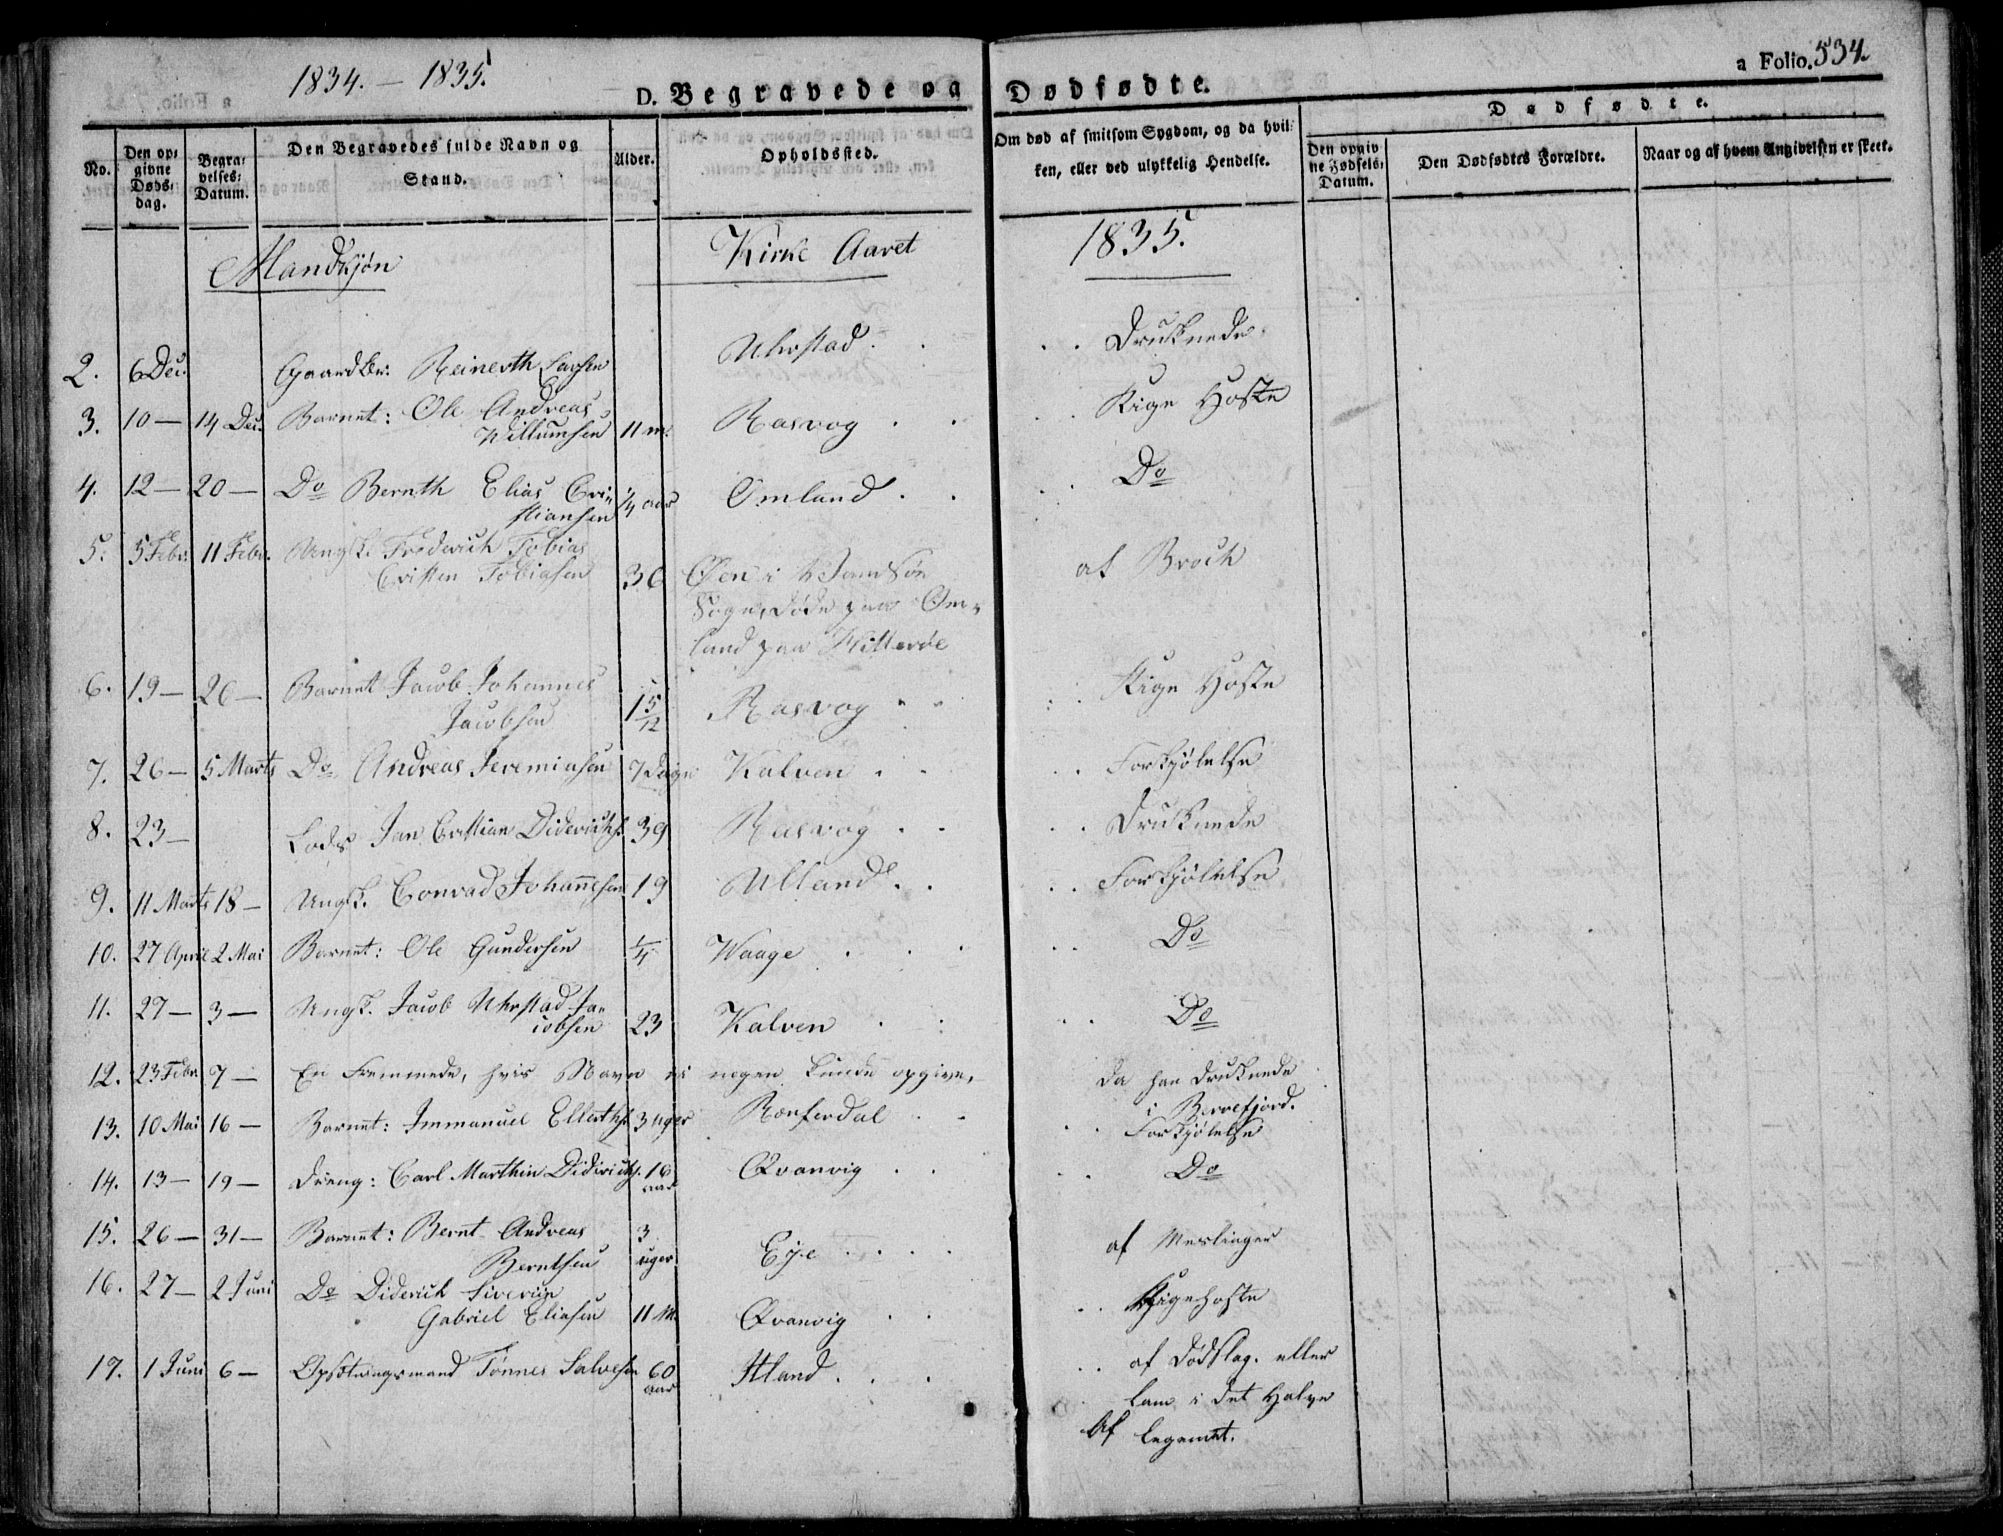 1834. – 1835.
a Folio. 534.
D. Begravede og Dødfødte.
No.
Den opgivne Døds-dag.
Begravelses-Datum.
Den Begravedes fulde Navn og Stand.
Alder.
Opholdssted.
Om død af smitsom Sygdom, og da hvilken, eller ved ulykkelig Hendelse.
Dødfødte.
Den opgivne Fødsels-Datum.
Den Dødfødtes Forældre.
Naar og af hvem Angivelsen er skeet.
Mandkjøn Kirke Aaret 1835.
2. 6 Dec. Gaardbr: Reinerth Uhrstad . . . . Druknede.
3. 10 — 14 Dec. Barnet: Ole Andreas
Willumsen 11 m. Rasvog . . . Kige Hoste
4. 12 — 20 — Do Bernth Elias Cri-
stiansen ¼ aar Omland . . . . Do
5. 5 Febr. 11 Febr. Ungk. Frederich Tobias
Cristen Tobiasen 36 Øen i
Sogn, døde paa Om-
land paa Hitterøe
af Broch
6. 19 — 26 — Barnet Jacob Johannes
Jacobsen 1 5/12 Rasvog . . Kige Hoste
7. 26 — 5 Marts Do Andreas Jeremiasen 7 Dage Kalven . . . . Forkjølelse
8. 23 — Lods Jan Cristian Diderichs. 39 Rasvog . . . . Druknede
9. 11 Marts 18 — Ungk. Conrad Johannesen 19 Ulland . . . . Forkjølelse
10. 27 April 2 Mai Barnet: Ole Gundersen ¼ Waage . . . . Do
11. 27 — 3 — Ungk. Jacob Uhrstad Ja-
cobsen 23 Kalven . . . . Do
12. 23 Febr. 7 — En Fremmede, hvis Navn ei nogen kunde opgive, da han druknede
i fjord.
13. 10 Mai 16 — Barnet: Immanuel Ellerths. 3 uger . . . Forkjølelse
14. 13 — 19 — Dreng: Carl Marthin Didrichs. 16
aar Qvanvig . . . Do
15. 26 — 31 — Barnet: Bernt Andreas
Berntsen 3
uger Eye . . . . af Meslinger
16. 27 — 2 Juni Do Diderich Siverin
Gabriel Eliasen 11 M. Qvanvig . . . . Kigehoste
17. 1 Juni 6 — Opsitningsmand Tønnes Salvesen 60
aar Itland . . . . . af Dødslag. eller
lam i det Halve
Af legemet.